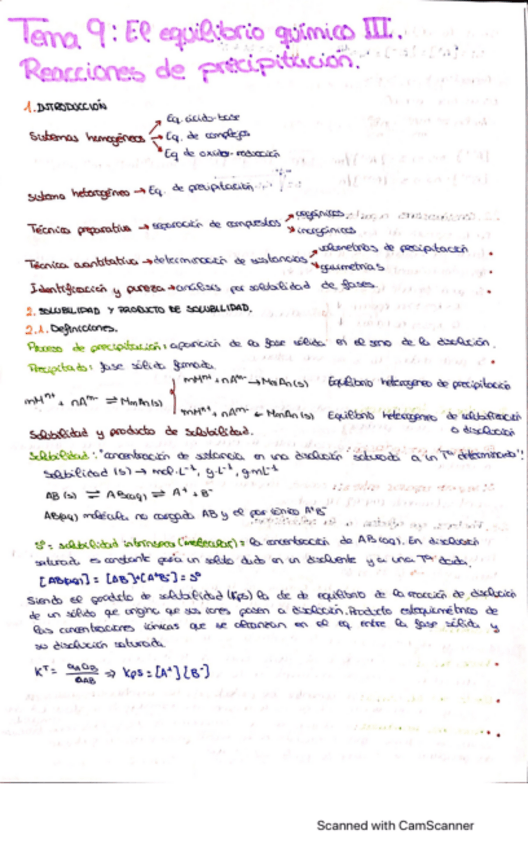 Tema 9: El equilibrio químico III.
Reacciones de precipitación.
1. INTRODUCCIÓN
Sistemas homogéneos → Eq. ácido-base
→ Eq. de complejos
→ Eq de oxido-reducción
Sistema heterogéneo → Eq. de precipitación
Técnica preparativa → separación de compuestos → orgánicos
→ inorgánicos
Técnica cuantitativa → determinación de sustancias → volumetrías de precipitación
→ gravimetrías
Identificación y pureza → análisis por solubilidad de fases.
2. SOLUBILIDAD Y PRODUCTO DE SOLUBILIDAD.
2.1. Definiciones.
Proceso de precipitación: aparición de la fase sólida en el seno de la disolución.
Precipitado: fase sólida formada
mMⁿ⁺ + nAᵐ⁻ → MmAn(s) Equilibrio heterogéneo de precipitación
mMⁿ⁺ + nAᵐ⁻ ⇌ MmAn(s)
mMⁿ⁺ + nAᵐ⁻ ← MmAn(s) Equilibrio heterogéneo de solubilización
o disolución
Solubilidad y producto de solubilidad.
Solubilidad: "concentración de sustancia, en una disolución saturada a un Tª determinada"!
Solubilidad (s) → mol·L⁻¹, g·L⁻¹, g·mL⁻¹
AB (s) ⇌ AB(aq) ⇌ A⁺ + B⁻
AB(aq) molécula no cargada AB y el par iónico A⁺B⁻
S° = solubilidad intrínseca (molecular) = la concentración de AB(aq). En disolución
saturada es constante para un sólido dado en un disolvente y a una Tª dada.
[AB(aq)] = [AB] + [A⁺B⁻] = S°
Siendo el producto de solubilidad (Kps) la cte de equilibrio de la reacción de disolución
de un sólido que origina que sus iones pasen a disolución. Producto estequiométrico de
las concentraciones iónicas que se alcanzan en el eq. entre la fase sólida y
su disolución saturada
Kᵀ = aA aB / aAB ⇒ Kps = [A⁺][B⁻]
Scanned with CamScanner